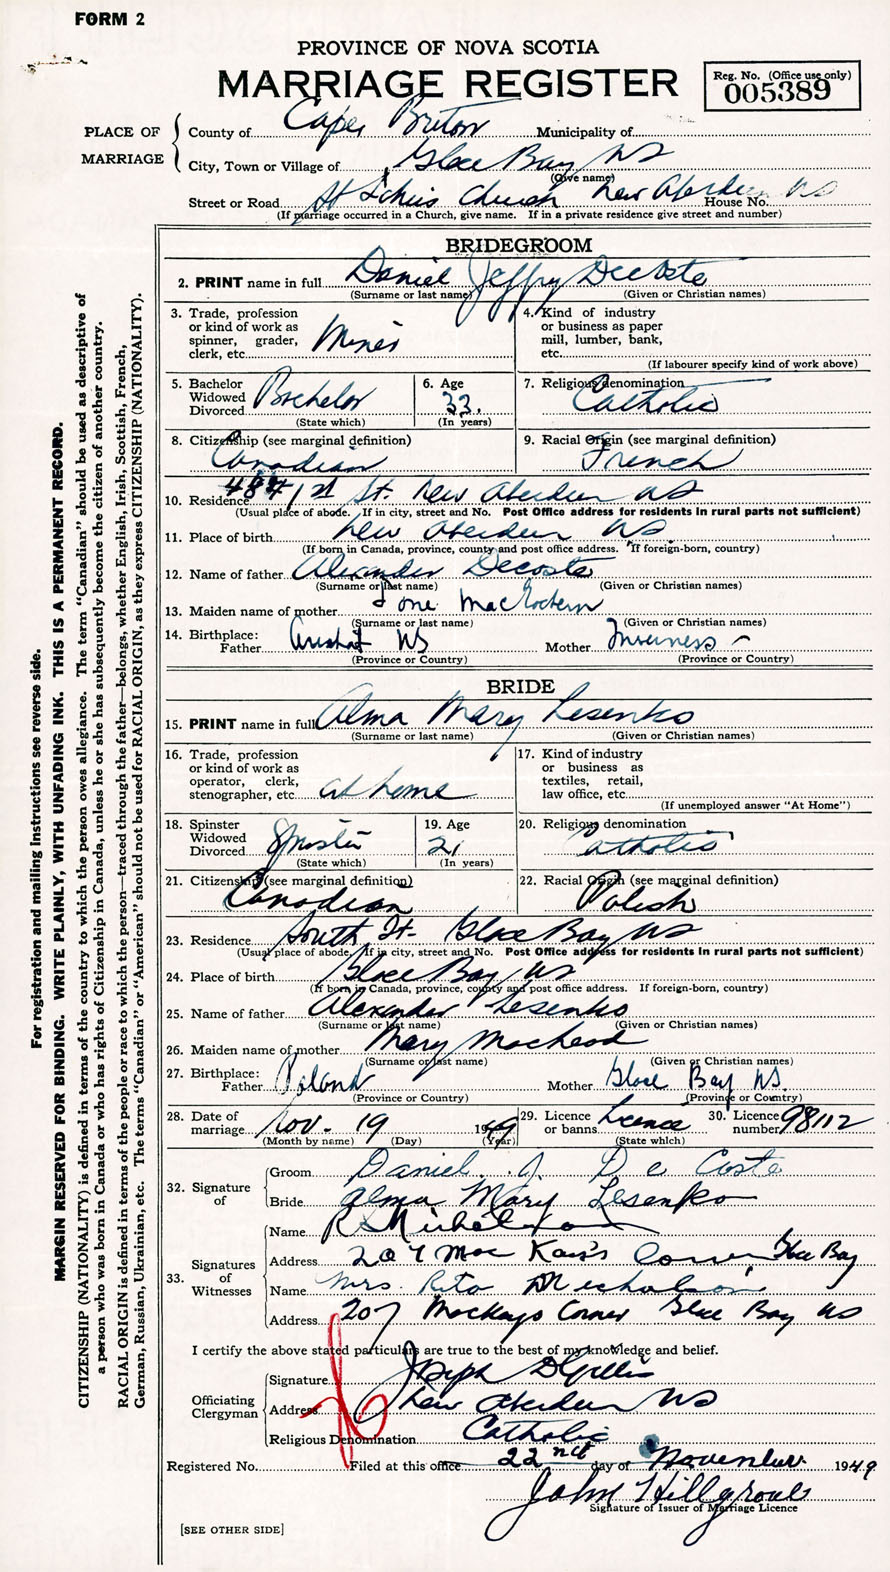 FORM 2
PROVINCE OF NOVA SCOTIA
MARRIAGE REGISTER
Reg. No. (Office use only)
005389
PLACE OF MARRIAGE
County of Cape Breton Municipality of
City, Town or Village of Glace Bay NS
(Give name)
Street or Road Church New Aberdeen NS House No.
(If marriage occurred in a Church, give name. If in a private residence give street and number)
BRIDEGROOM
2. PRINT name in full Daniel Jeffry DeCoste
(Surname or last name) (Given or Christian names)
3. Trade, profession or kind of work as spinner, grader, clerk, etc. Miner
4. Kind of industry or business as paper mill, lumber, bank, etc.
(If labourer specify kind of work above)
5. Bachelor Widowed Divorced Bachelor
(State which)
6. Age 33.
(In years)
7. Religious denomination Catholic
8. Citizenship (see marginal definition) Canadian
9. Racial Origin (see marginal definition) French
10. Residence 1st St. New Aberdeen NS
(Usual place of abode. If in city, street and No. Post Office address for residents in rural parts not sufficient)
11. Place of birth New Aberdeen NS
(If born in Canada, province, county and post office address. If foreign-born, country)
12. Name of father Alexander Decoste
(Surname or last name) (Given or Christian names)
13. Maiden name of mother
(Surname or last name) (Given or Christian names)
14. Birthplace: Father Arichat NS Mother Inverness
(Province or Country) (Province or Country)
BRIDE
15. PRINT name in full Alma Mary Lesenko
(Surname or last name) (Given or Christian names)
16. Trade, profession or kind of work as operator, clerk, stenographer, etc. at home
17. Kind of industry or business as textiles, retail, law office, etc.
(If unemployed answer "At Home")
18. Spinster Widowed Divorced Spinster
(State which)
19. Age 21
(In years)
20. Religious denomination Catholic
21. Citizenship (see marginal definition) Canadian
22. Racial Origin (see marginal definition) Polish
23. Residence South St. Glace Bay NS
(Usual place of abode. If in city, street and No. Post Office address for residents in rural parts not sufficient)
24. Place of birth Glace Bay NS
(If born in Canada, province, county and post office address. If foreign-born, country)
25. Name of father Alexander Lesenko
(Surname or last name) (Given or Christian names)
26. Maiden name of mother Mary MacLeod
(Surname or last name) (Given or Christian names)
27. Birthplace: Father Poland Mother Glace Bay NS.
(Province or Country) (Province or Country)
28. Date of marriage Nov. 19 1949
(Month by name) (Day) (Year)
29. Licence or banns Licence
(State which)
30. Licence number 98112
32. Signature of
Groom Daniel J. DeCoste
Bride Alma Mary Lesenko
33. Signatures of Witnesses
Name R Nicholson
Address 207 Mac Kay's Corner Glace Bay
Name Mrs. Rita Nicholson
Address 207 MacKays Corner Glace Bay NS
I certify the above stated particulars are true to the best of my knowledge and belief.
Officiating Clergyman
Signature Joseph D Gillis
Address New Aberdeen NS
Religious Denomination Catholic
Registered No. Filed at this office 22nd day of November 1949
John Hillgrout
Signature of Issuer of Marriage Licence
[SEE OTHER SIDE]
For registration and mailing instructions see reverse side.
MARGIN RESERVED FOR BINDING. WRITE PLAINLY, WITH UNFADING INK. THIS IS A PERMANENT RECORD.
CITIZENSHIP (NATIONALITY) is defined in terms of the country to which the person owes allegiance. The term "Canadian" should be used as descriptive of
a person who was born in Canada or who has rights of Citizenship in Canada, unless he or she has subsequently become the citizen of another country.
RACIAL ORIGIN is defined in terms of the people or race to which the person—traced through the father—belongs, whether English, Irish, Scottish, French,
German, Russian, Ukrainian, etc. The terms "Canadian" or "American" should not be used for RACIAL ORIGIN, as they express CITIZENSHIP (NATIONALITY).